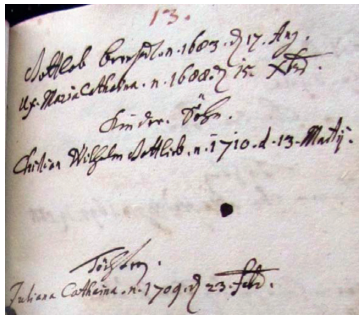 13.
Gottlob n. 1683. d 17. Aug.
Ux. Maria Catharina. n. 1688. d 15. Xbr.
Kinder. Söhn.
Christian Wilhelm Gottlieb. n. 1710. d. 13. Martij.
Töchter.
Juliana Catharina. n. 1709. d 23. Febr.